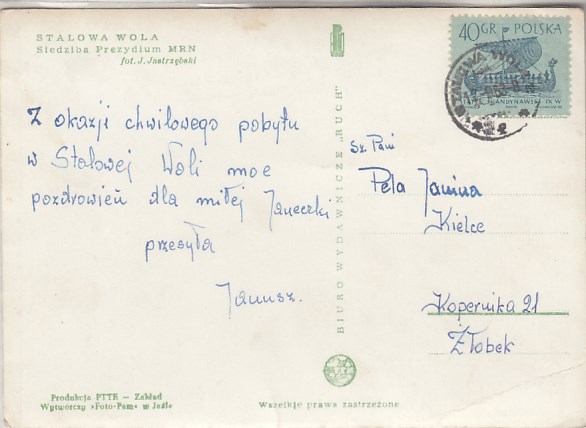 STALOWA WOLA
Siedziba Prezydium MRN
fot. J. Jastrzębski
Z okazji chwilowego pobytu
w Stalowej Woli moc
pozdrowień dla miłej Janeczki
przesyła
Janusz.
BIURO WYDAWNICZE „RUCH"
40 GR POLSKA
STALOWA WOLA
Sz. Pani
Pela Janina
Kielce
Kopernika 21
Żłobek
Produkcja PTTK — Zakład
Wytwórczy »Foto-Pam« w Jaśle
Wszelkie prawa zastrzeżone